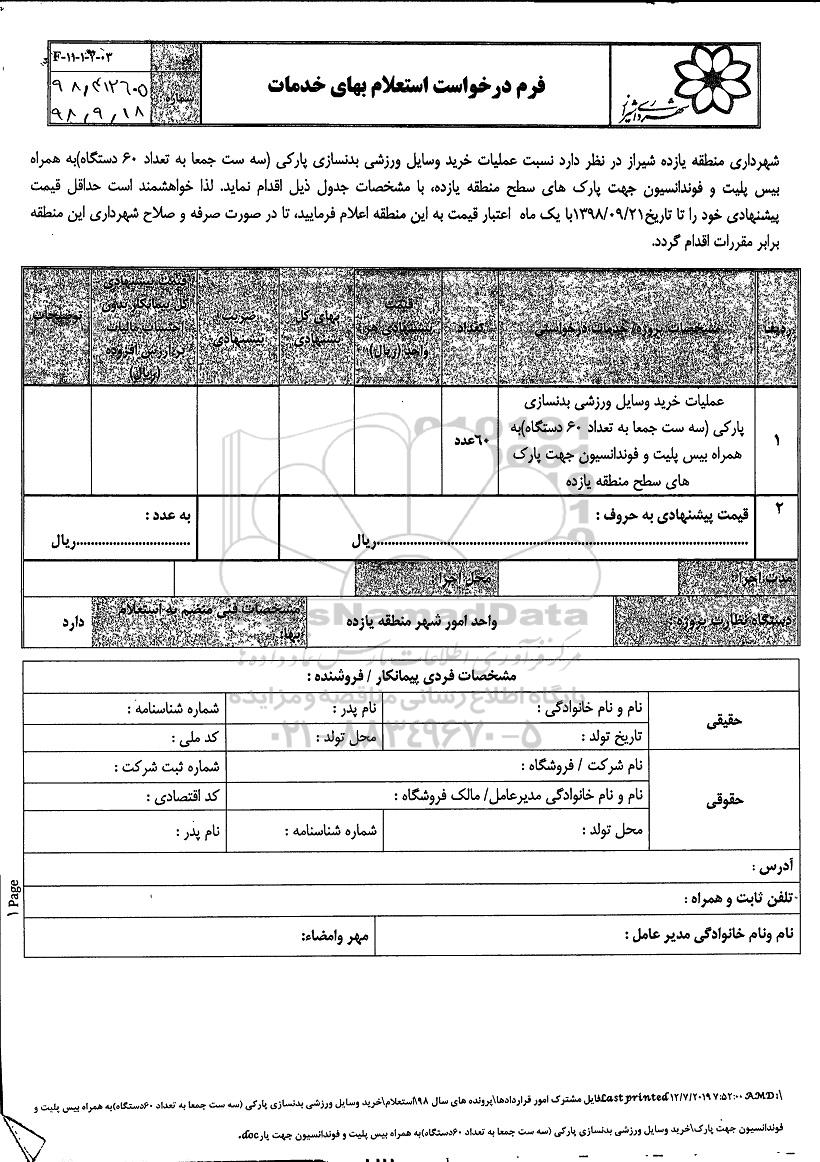 شهرداری شیراز
فرم درخواست استعلام بهای خدمات
کد:
F-۱۱-۱-۲-۰۳
شماره
۹۸٫۴۱۲۶۰۵
۹۸٫۹٫۱۸
شهرداری منطقه یازده شیراز در نظر دارد نسبت عملیات خرید وسایل ورزشی بدنسازی پارکی (سه ست جمعا به تعداد ۶۰ دستگاه)به همراه
بیس پلیت و فوندانسیون جهت پارک های سطح منطقه یازده، با مشخصات جدول ذیل اقدام نماید. لذا خواهشمند است حداقل قیمت
پیشنهادی خود را تا تاریخ۱۳۹۸/۰۹/۲۱با یک ماه اعتبار قیمت به این منطقه اعلام فرمایید، تا در صورت صرفه و صلاح شهرداری این منطقه
برابر مقررات اقدام گردد.
ردیف
مشخصات پروژه/ خدمات درخواستی
تعداد
قیمت پیشنهادی هر واحد (ریال)
بهای کل پیشنهادی
ضریب پیشنهادی
قیمت پیشنهادی کل پیمانکار بدون احتساب مالیات بر ارزش افزوده (ریال)
توضیحات
۱
عملیات خرید وسایل ورزشی بدنسازی
پارکی (سه ست جمعا به تعداد ۶۰ دستگاه)به
همراه بیس پلیت و فوندانسیون جهت پارک
های سطح منطقه یازده
۶۰عدد
۲
قیمت پیشنهادی به حروف :
..............................ریال
به عدد :
..............................ریال
مدت اجرا:
محل اجرا:
دستگاه نظارت پروژه:
واحد امور شهر منطقه یازده
مشخصات فنی منضم به استعلام بها:
دارد
sNamadData
مرکز فرآوری اطلاعات پارس نماد داده ها
پایگاه اطلاع رسانی مناقصه و مزایده
۰۲۱-۸۸۳۴۹۶۷۰-۵
مشخصات فردی پیمانکار / فروشنده :
حقیقی
نام و نام خانوادگی :
نام پدر :
شماره شناسنامه :
تاریخ تولد :
محل تولد :
کد ملی :
حقوقی
نام شرکت / فروشگاه :
شماره ثبت شرکت :
نام و نام خانوادگی مدیرعامل/ مالک فروشگاه :
کد اقتصادی :
محل تولد :
شماره شناسنامه :
نام پدر :
آدرس :
تلفن ثابت و همراه :
نام ونام خانوادگی مدیر عامل :
مهر وامضاء:
۱ Page
I:\فایل مشترک امور قراردادها\پرونده های سال ۹۸\استعلام\خرید وسایل ورزشی بدنسازی پارکی (سه ست جمعا به تعداد ۶۰دستگاه)به همراه بیس پلیت و Last printed ۱۲/۷/۲۰۱۹ ۷:۵۲:۰۰ AM
فوندانسیون جهت پارک\خرید وسایل ورزشی بدنسازی پارکی (سه ست جمعا به تعداد ۶۰دستگاه)به همراه بیس پلیت و فوندانسیون جهت پار.doc